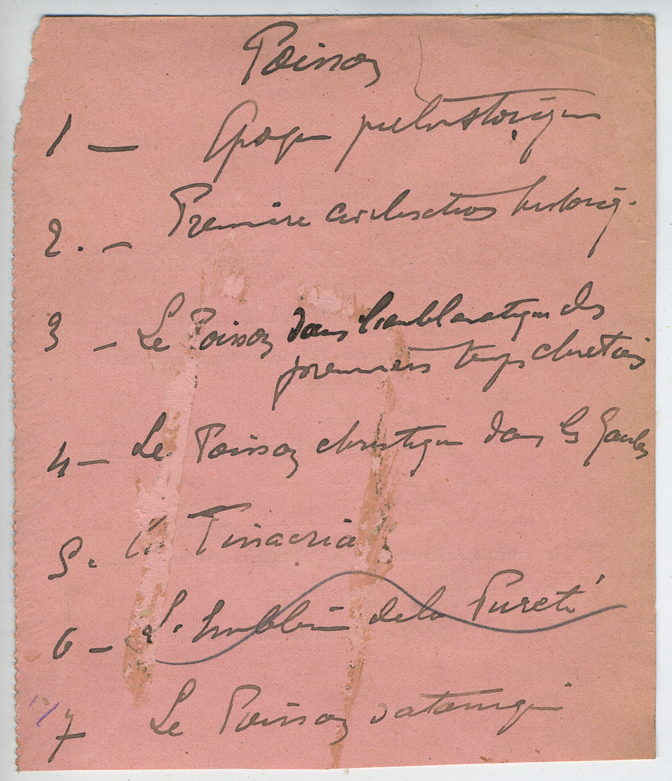 Poisson
1 - Epoque préhistorique
2. - Première civilisation historiq.
3 - Le Poisson dans l'emblématique des
premiers temps chrétiens
4 - Le Poisson christique dans les Gaules
5.
6 - L'Emblème de la Pureté
7 Le Poisson satanique